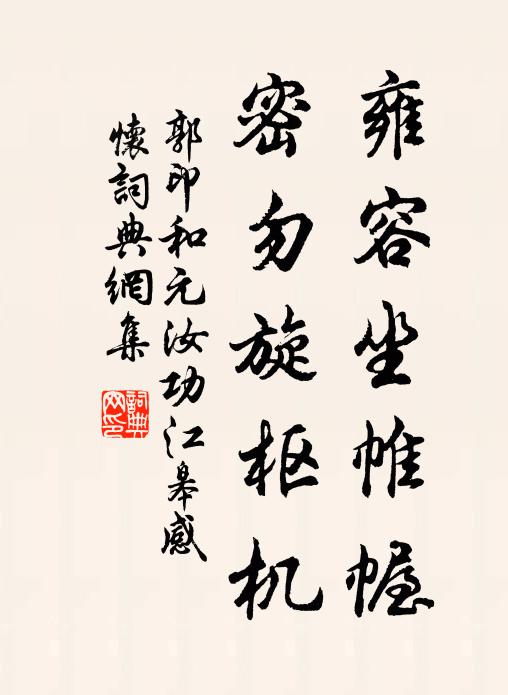 雍容坐帷幄
密勿旋枢机
郭印和元汝功江皋感
懷詞典網集
詞典
网印